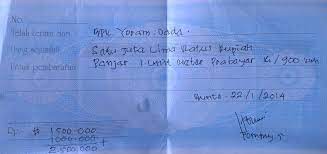 No.
Telah terima dari BPK Yoram. Dada.
Uang sejumlah Satu Juta Lima Ratus Rupiah
Untuk pembayaran Panjar 1 unit meter Prabayar R1/900
22/1/2014
1500.000
1000.000 +
2.500.000